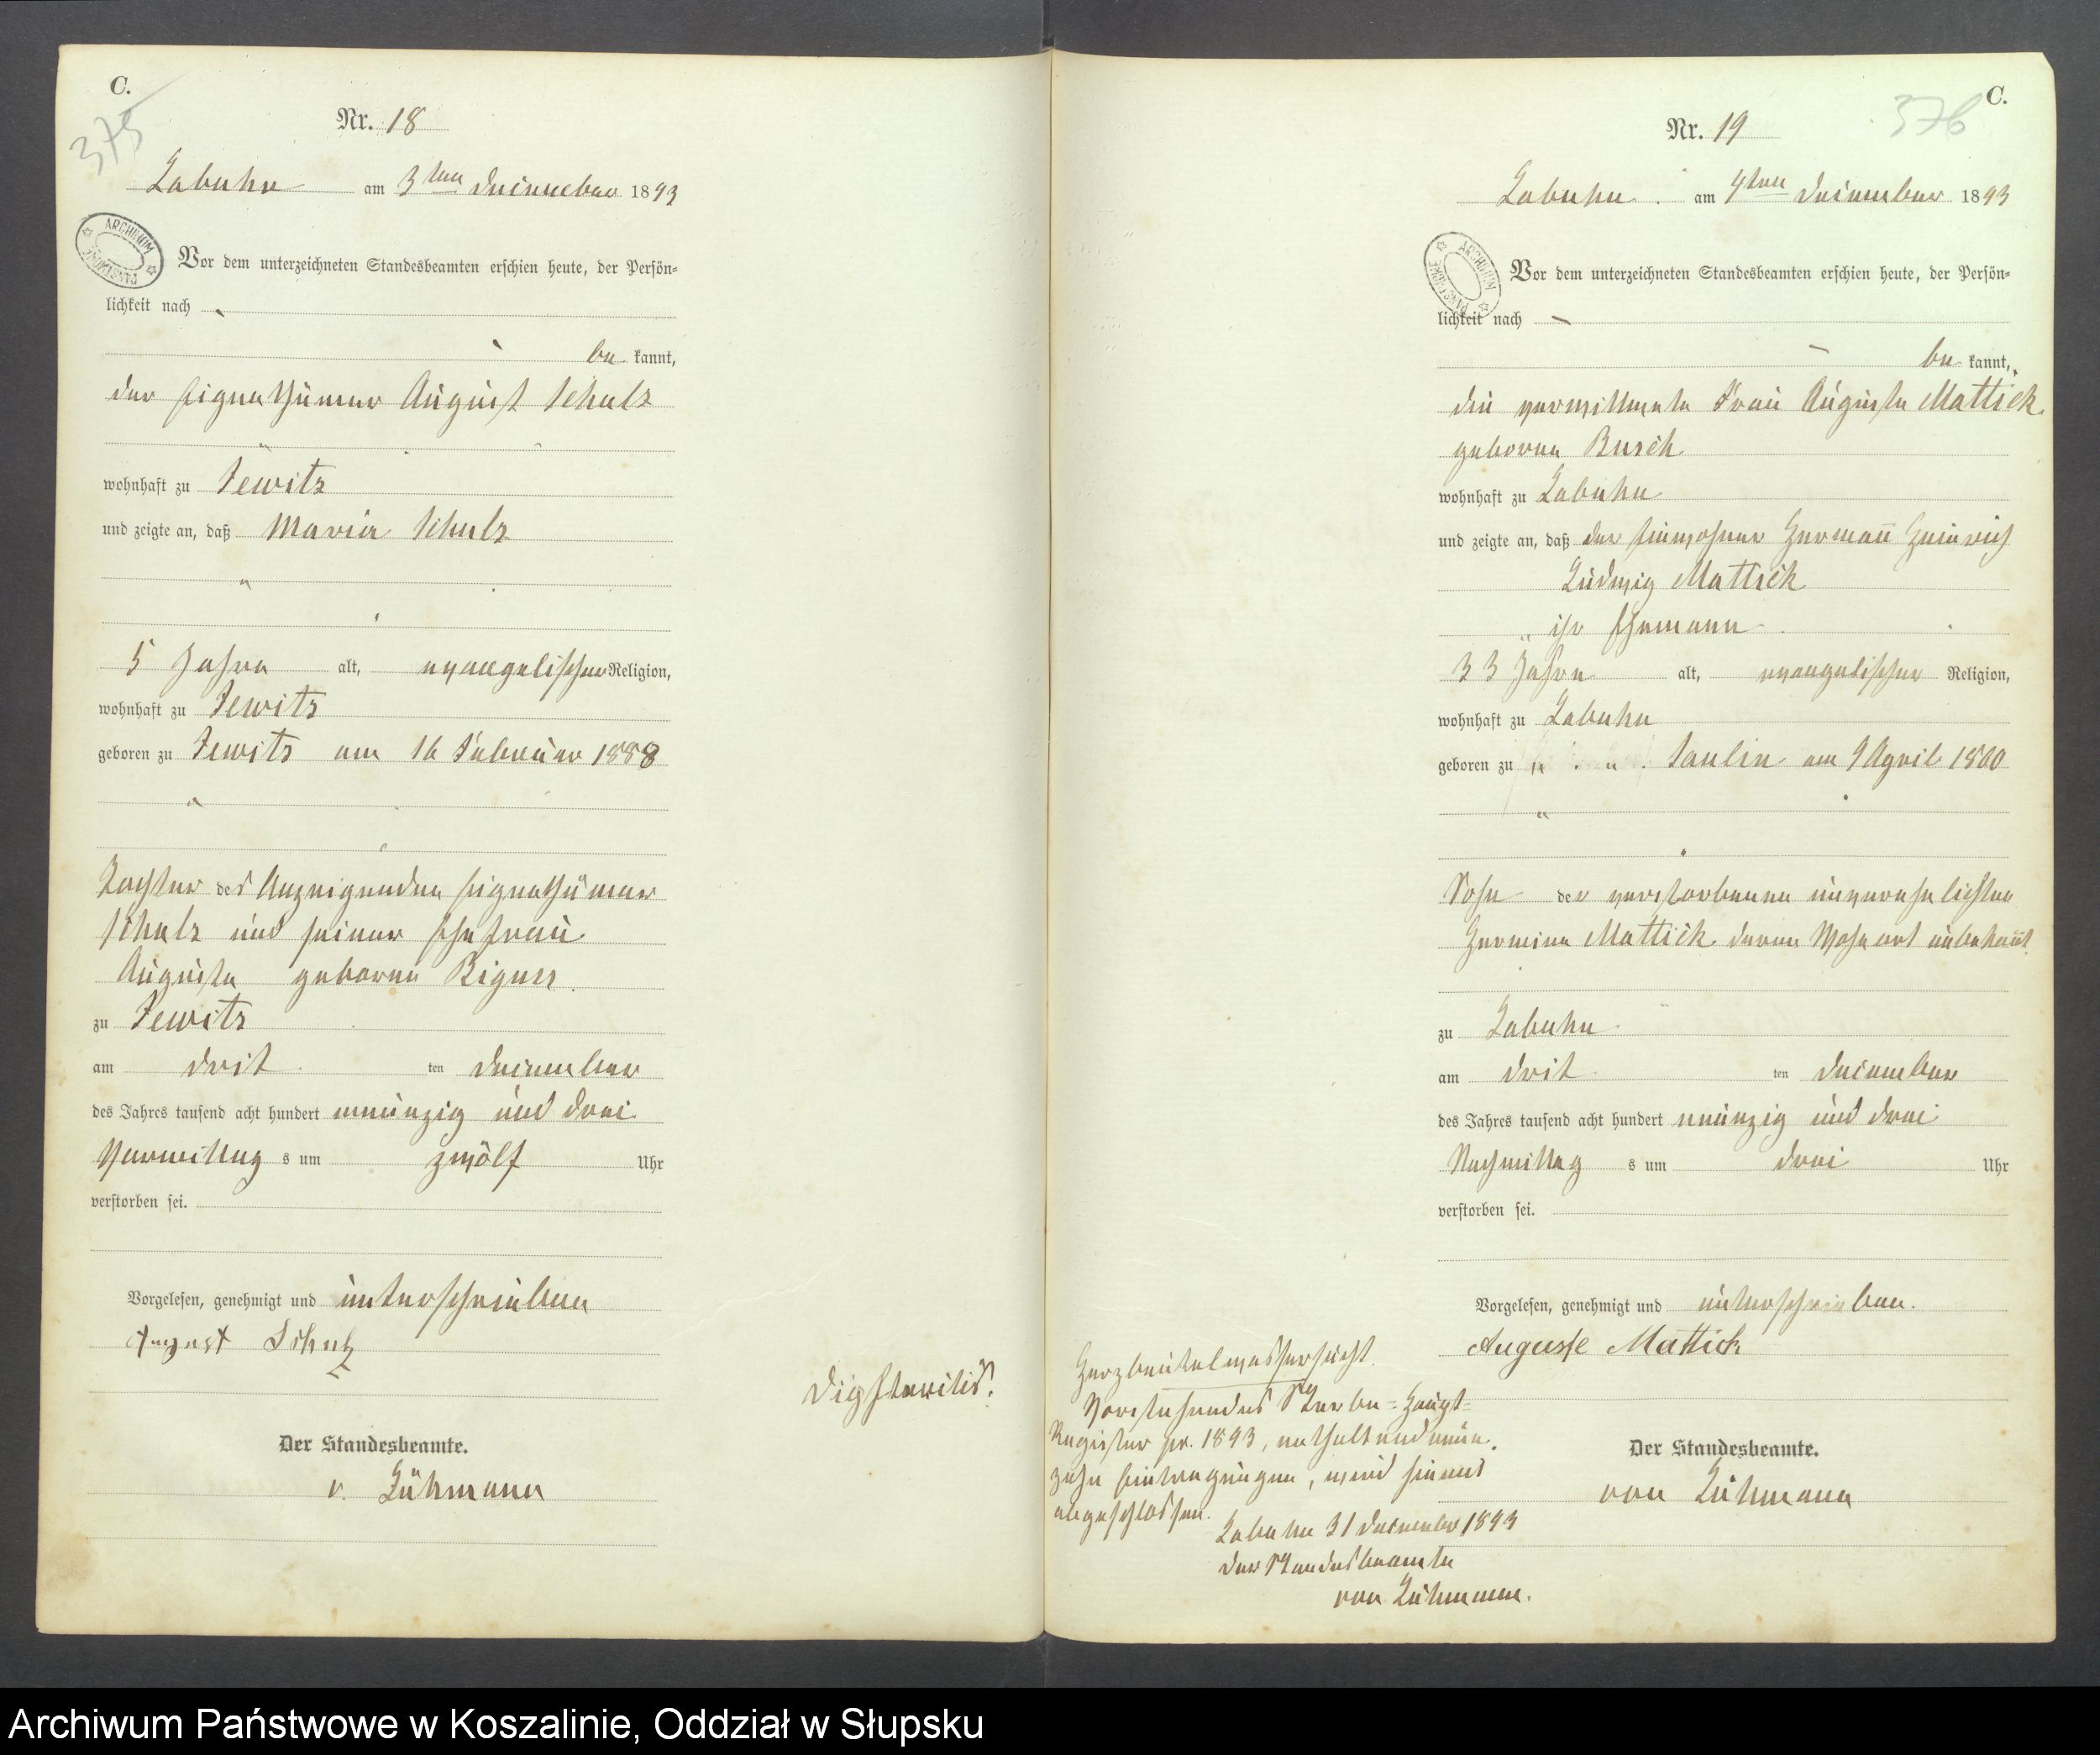 C.
375
Nr. 18
Labuhn am 3ten Dezember 1893
ARCHIWUM PAŃSTWOWE
Vor dem unterzeichneten Standesbeamten erschien heute, der Persön-
lichkeit nach
be kannt,
der Eigenthümer August Schulz
wohnhaft zu Jewitz
und zeigte an, daß Maria Schulz
5 Jahre alt, evangelischer Religion,
wohnhaft zu Jewitz
geboren zu Jewitz am 16 Februar 1888
Tochter des Anzeigenden Eigenthümer
Schulz und seiner Ehefrau
Auguste geborene
zu Jewitz
am drit ten Dezember
des Jahres tausend acht hundert neunzig und drei
Vormittag s um zwölf Uhr
verstorben sei.
Vorgelesen, genehmigt und unterschrieben
August Schulz
Der Standesbeamte.
v. Lühmann
Diphteritis.
C.
376
Nr. 19
Labuhn am 4ten Dezember 1893
ARCHIWUM PAŃSTWOWE
Vor dem unterzeichneten Standesbeamten erschien heute, der Persön-
lichkeit nach
be kannt,
die verwittwete Frau Auguste Mattick
geborene Busch
wohnhaft zu Labuhn
und zeigte an, daß der Einwohner Hermañ Heinrich
Ludwig Mattick
ihr Ehemann
33 Jahre alt, evangelischer Religion,
wohnhaft zu Labuhn
geboren zu Saulin am 9 April 1860
Sohn der verstorbenen unverehelichten
Hermine Mattick deren Wohnort unbekañt
zu Labuhn
am drit ten Dezember
des Jahres tausend acht hundert neunzig und drei
Nachmittag s um drei Uhr
verstorben sei.
Vorgelesen, genehmigt und unterschrieben.
Auguste Mattick
Der Standesbeamte.
von Lühmann
Herzbeutelwassersucht.
Vorstehendes Sterbe-Haupt-
Register pr. 1893, enthaltend neun-
zehn Eintragungen, wird hiermit
abgeschlossen.
Labuhn 31 Dezember 1893
der Standesbeamte
von Lühmann.
Archiwum Państwowe w Koszalinie, Oddział w Słupsku